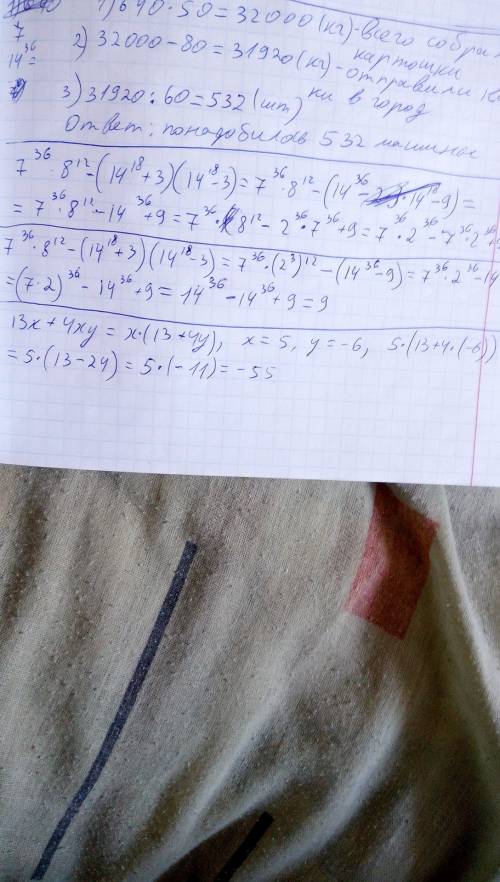 1) 640 · 50 = 32000 (кг) - всего собрали
7
2) 32000 - 80 = 31920 (кг) - картошки
14³⁶ =
отправили
3) 31920 : 60 = 532 (шт)
ки в город
Ответ: понадобилось 532 машины
7³⁶ · 8¹² - (14¹⁸ + 3)(14¹⁸ - 3) = 7³⁶ · 8¹² - (14³⁶ - 9) =
= 7³⁶ · 8¹² - 14³⁶ + 9 = 7³⁶ · 8¹² - 2³⁶ · 7³⁶ + 9 = 7³⁶ · 2³⁶ - 7³⁶ · 2³⁶ +
7³⁶ · 8¹² - (14¹⁸ + 3)(14¹⁸ - 3) = 7³⁶ · (2³)¹² - (14³⁶ - 9) = 7³⁶ · 2³⁶ - 14
= (7 · 2)³⁶ - 14³⁶ + 9 = 14³⁶ - 14³⁶ + 9 = 9
13x + 4xy = x · (13 + 4y), x = 5, y = -6, 5 · (13 + 4 · (-6))
= 5 · (13 - 24) = 5 · (-11) = -55